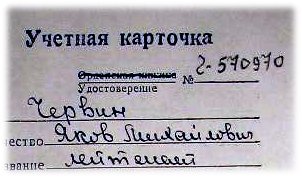 Учетная карточка
Орденская книжка
Удостоверение № г-570970
Червин
ество Яков Михайлович
звание лейтенант